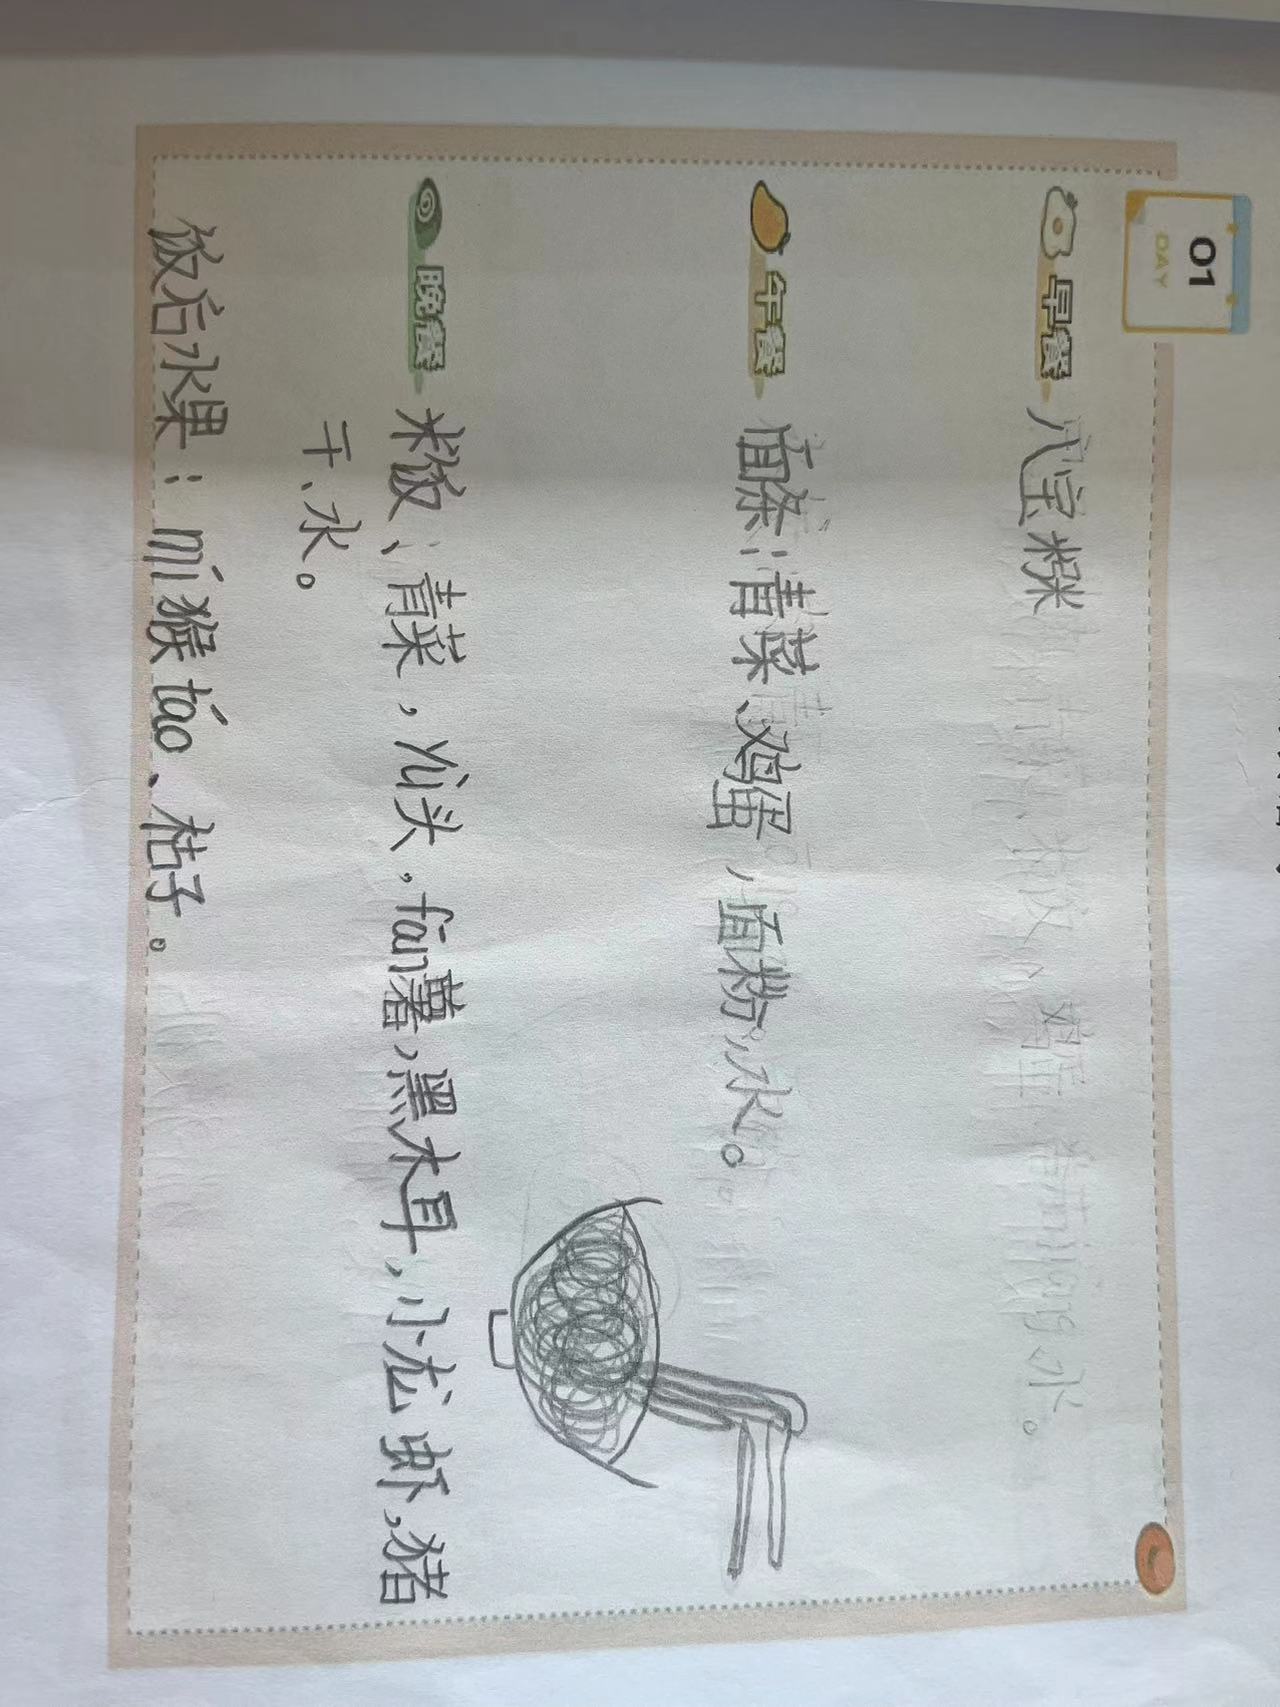 01
DAY
早餐 八宝粥
午餐 面条：青菜、鸡蛋，面粉，水。
晚餐 米饭、青菜，yù头，fān薯，黑木耳，小龙虾，猪
干、水。
饭后水果：mí猴táo、桔子。